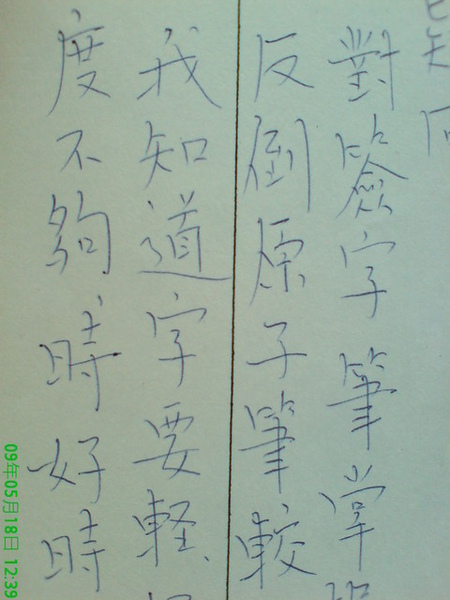 對簽字筆掌
反倒原子筆較
我知道字要軽
度不夠時好時
09年05月18日 12:39